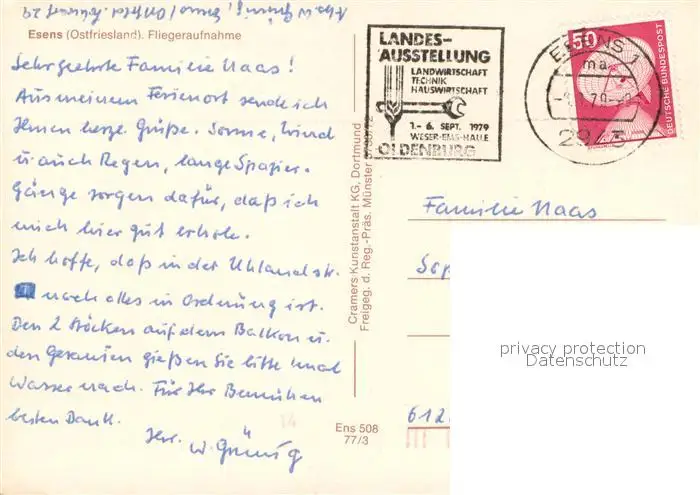 Esens (Ostfriesland). Fliegeraufnahme
Sehr geehrte Familie Naas!
Aus meinem Ferienort sende ich
Ihnen herzl. Grüße. Sonne, Wind
u. auch Regen, lange Spazier-
gänge sorgen dafür, daß ich
mich hier gut erhole.
Ich hoffe, daß in der Uhlandstr.
noch alles in Ordnung ist.
Den 2 Stöcken auf dem Balkon u.
den Geranien gießen Sie bitte mal
Wasser nach. Für Ihr Bemühen
besten Dank.
Ihr. W. Grünig
Ens 508
77/3
Cramers Kunstanstalt KG, Dortmund
Freigeg. d. Reg.-Präs. Münster
LANDES-
AUSSTELLUNG
LANDWIRTSCHAFT
TECHNIK
HAUSWIRTSCHAFT
1.- 6. SEPT. 1979
WESER-EMS-HALLE
OLDENBURG
ESENS 1
ma
79
50
DEUTSCHE BUNDESPOST
Familie Naas
612
privacy protection
Datenschutz